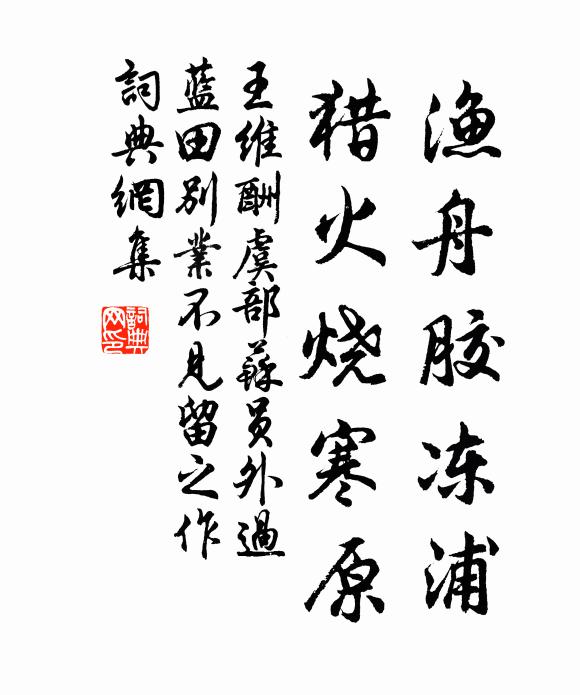 渔舟胶冻浦
猎火烧寒原
王维酬虞部蘇员外過
蓝田别業不見留之作
詞典網集
詞典网印